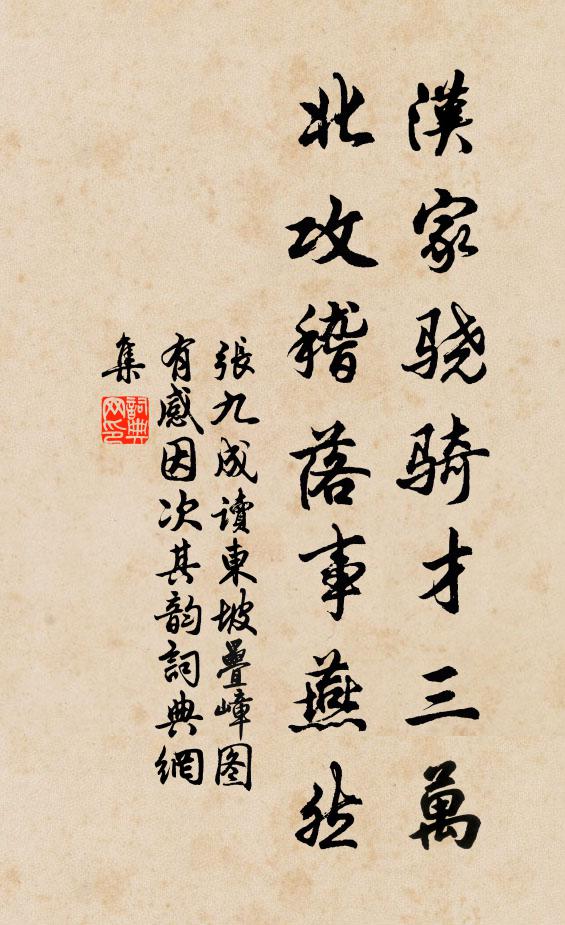 漢家骁骑才三萬
北攻稽落事燕然
張九成讀東坡疊嶂图
有感因次其韵詞典網
集
詞典
网印